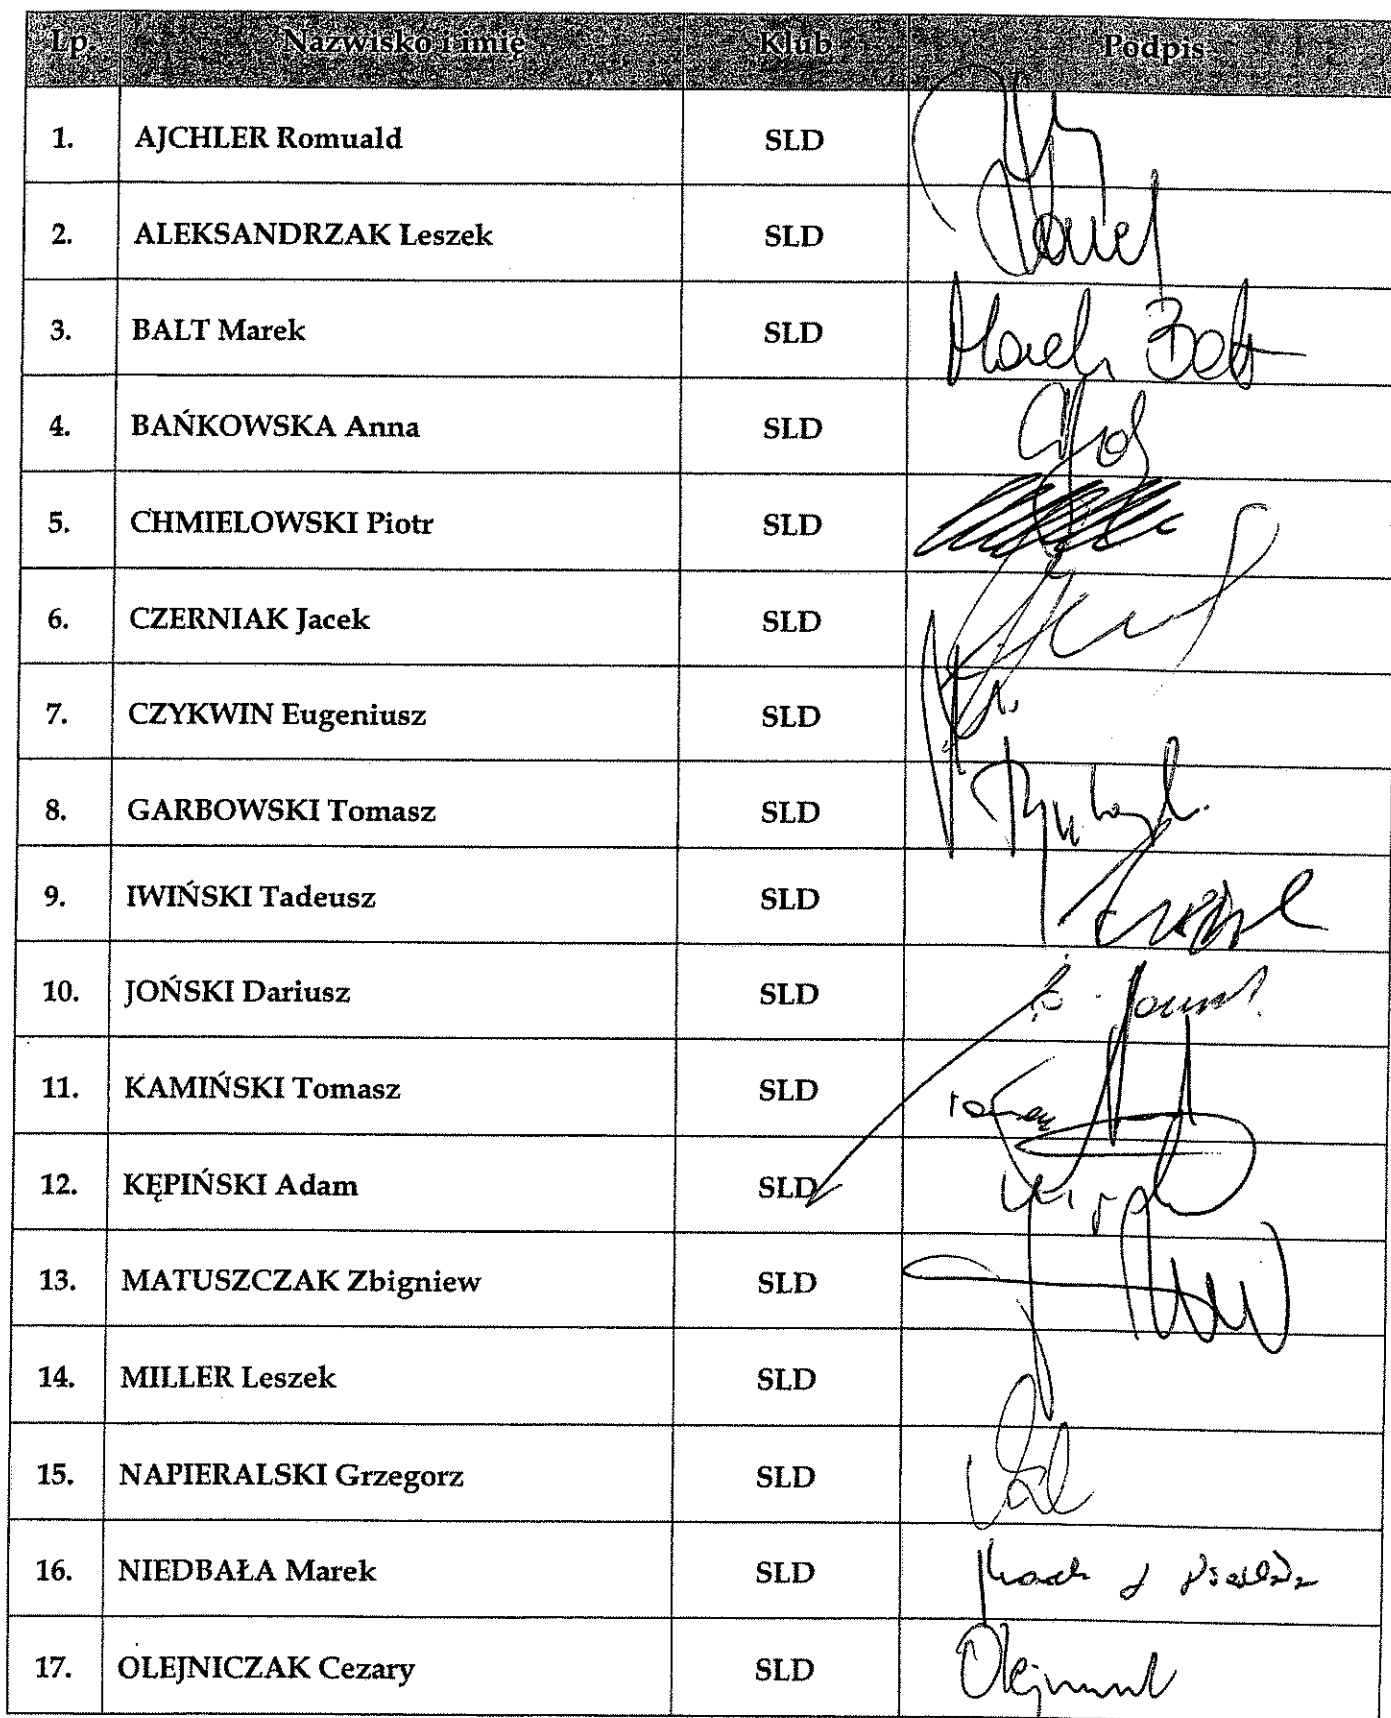 Lp. Nazwisko i imię Klub Podpis
1. AJCHLER Romuald SLD
2. ALEKSANDRZAK Leszek SLD
3. BALT Marek SLD Marek Balt
4. BAŃKOWSKA Anna SLD
5. CHMIELOWSKI Piotr SLD
6. CZERNIAK Jacek SLD
7. CZYKWIN Eugeniusz SLD
8. GARBOWSKI Tomasz SLD
9. IWIŃSKI Tadeusz SLD
10. JOŃSKI Dariusz SLD
11. KAMIŃSKI Tomasz SLD
12. KĘPIŃSKI Adam SLD
13. MATUSZCZAK Zbigniew SLD
14. MILLER Leszek SLD
15. NAPIERALSKI Grzegorz SLD
16. NIEDBAŁA Marek SLD
17. OLEJNICZAK Cezary SLD